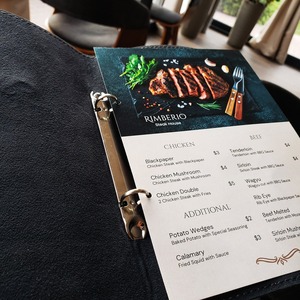 RIMBERIO
Steak House
CHICKEN
Blackpaper $3
Chicken Steak with Blackpaper
Chicken Mushroom $4
Chicken Steak with Mushroom
Chicken Double $5
2 Chicken Steak with Fried
BEEF
Tenderloin $4
Tenderloin with BBQ Sauce
Sirloin
Sirloin Steak with BBQ Sauce
Wagyu
Wagyu cut with BBQ Sauce
Rib Eye
Rib Eye with Blackpaper
Beef Melted
Tenderloin with
Sirloin Mush
Sirloin Steak with
ADDITIONAL
Potato Wedges $2
Baked Potato with Special Seasoning
Calamary $3
Fried Squid with Sauce